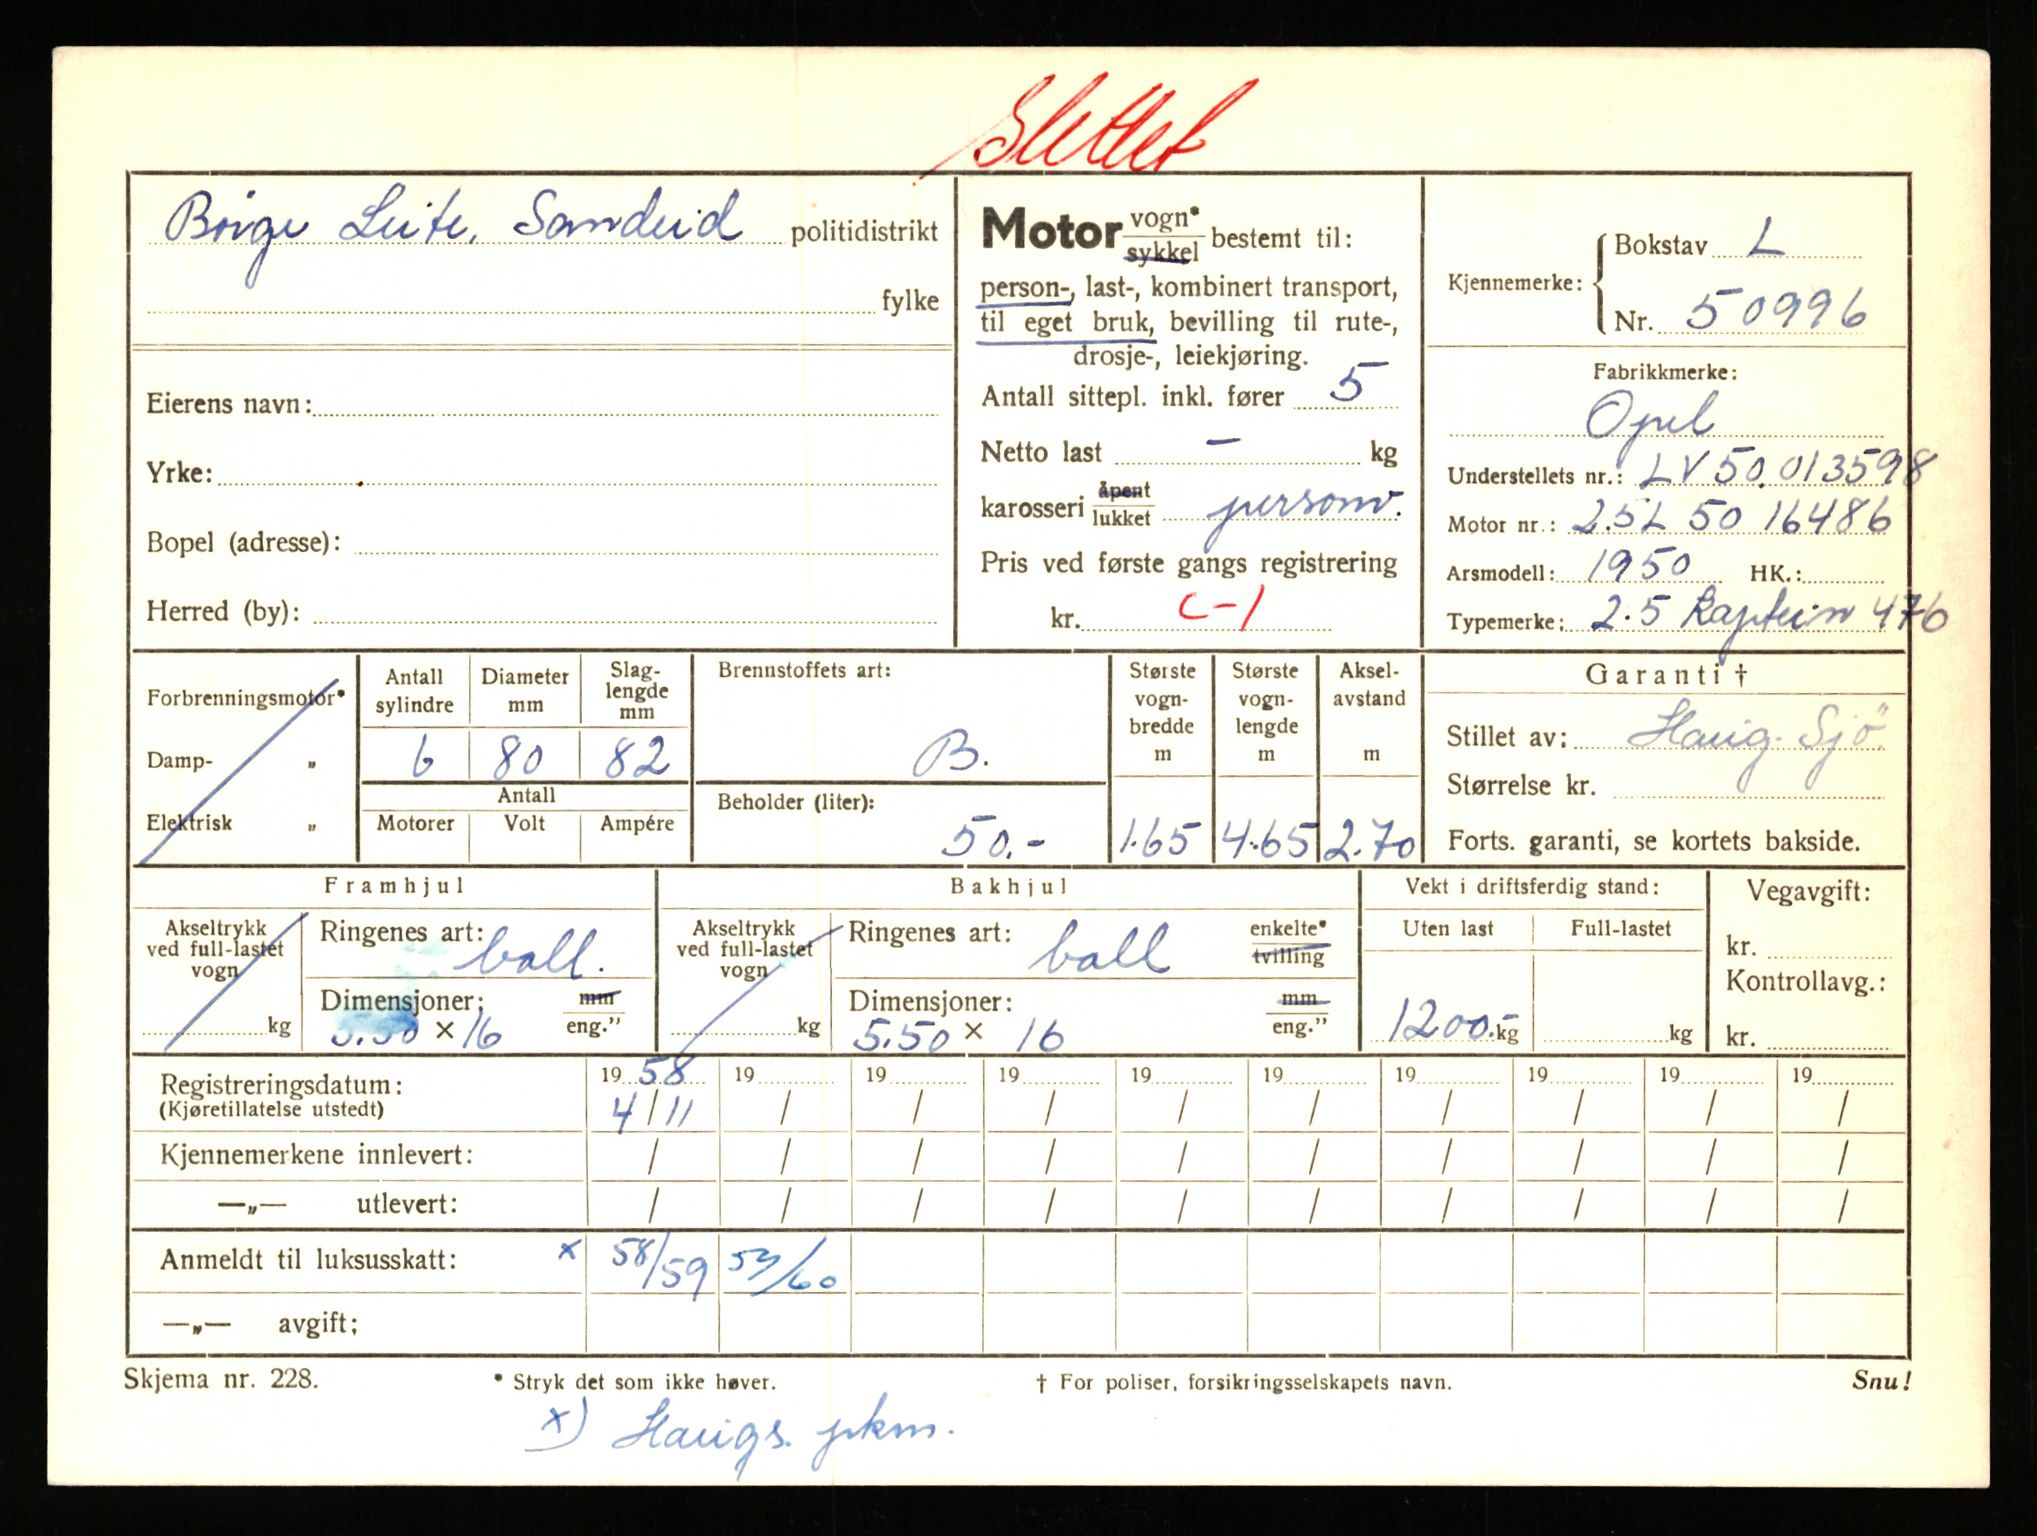 Slettet
Børge Leite, Sandeid politidistrikt
fylke
Eierens navn:
Yrke:
Bopel (adresse):
Herred (by):
Motor vogn* sykkel bestemt til:
person-, last-, kombinert transport,
til eget bruk, bevilling til rute-,
drosje-, leiekjøring.
Antall sittepl. inkl. fører 5
Netto last - kg
karosseri åpent lukket personv.
Pris ved første gangs registrering
kr. C-1
Kjennemerke: Bokstav L
Nr. 50996
Fabrikkmerke:
Opel
Understellets nr.: LV 50.013598
Motor nr.: 2.5L 50 16486
Arsmodell: 1950 HK.:
Typemerke: 2.5 Kaptein 476
Forbrenningsmotor*
Damp- „
Elektrisk „
Antall sylindre 6
Diameter mm 80
Slag-lengde mm 82
Antall
Motorer Volt Ampére
Brennstoffets art:
B.
Beholder (liter):
50.-
Største vogn-bredde m 1.65
Største vogn-lengde m 4.65
Aksel-avstand m 2.70
Garanti †
Stillet av: Haug. Sjö
Størrelse kr.
Forts. garanti, se kortets bakside.
Framhjul
Akseltrykk ved full-lastet vogn kg
Ringenes art: ball.
Dimensjoner: mm eng."
5.50 × 16
Bakhjul
Akseltrykk ved full-lastet vogn kg
Ringenes art: ball enkelte* tvilling
Dimensjoner: mm eng."
5.50 × 16
Vekt i driftsferdig stand:
Uten last Full-lastet
1200.- kg kg
Vegavgift:
kr.
Kontrollavg.:
kr.
Registreringsdatum: 19 58 19 19 19 19 19 19 19 19 19
(Kjøretillatelse utstedt) 4/11 / / / / / / / / /
Kjennemerkene innlevert: / / / / / / / / / /
—„— utlevert: / / / / / / / / / /
Anmeldt til luksusskatt: x 58/59 59/60
—„— avgift;
Skjema nr. 228. * Stryk det som ikke høver. † For poliser, forsikringsselskapets navn. Snu!
x) Haugs. pkm.